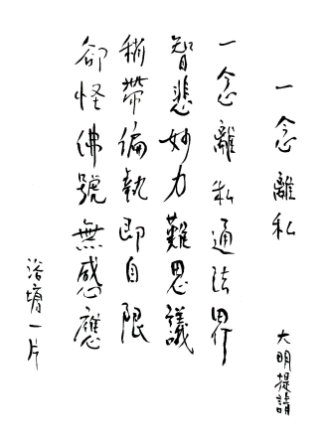 一念離私
大明提請
一念離私通法界
智悲妙力難思議
稍帶偏執即自限
卻怪佛號無感應
浴堉一片